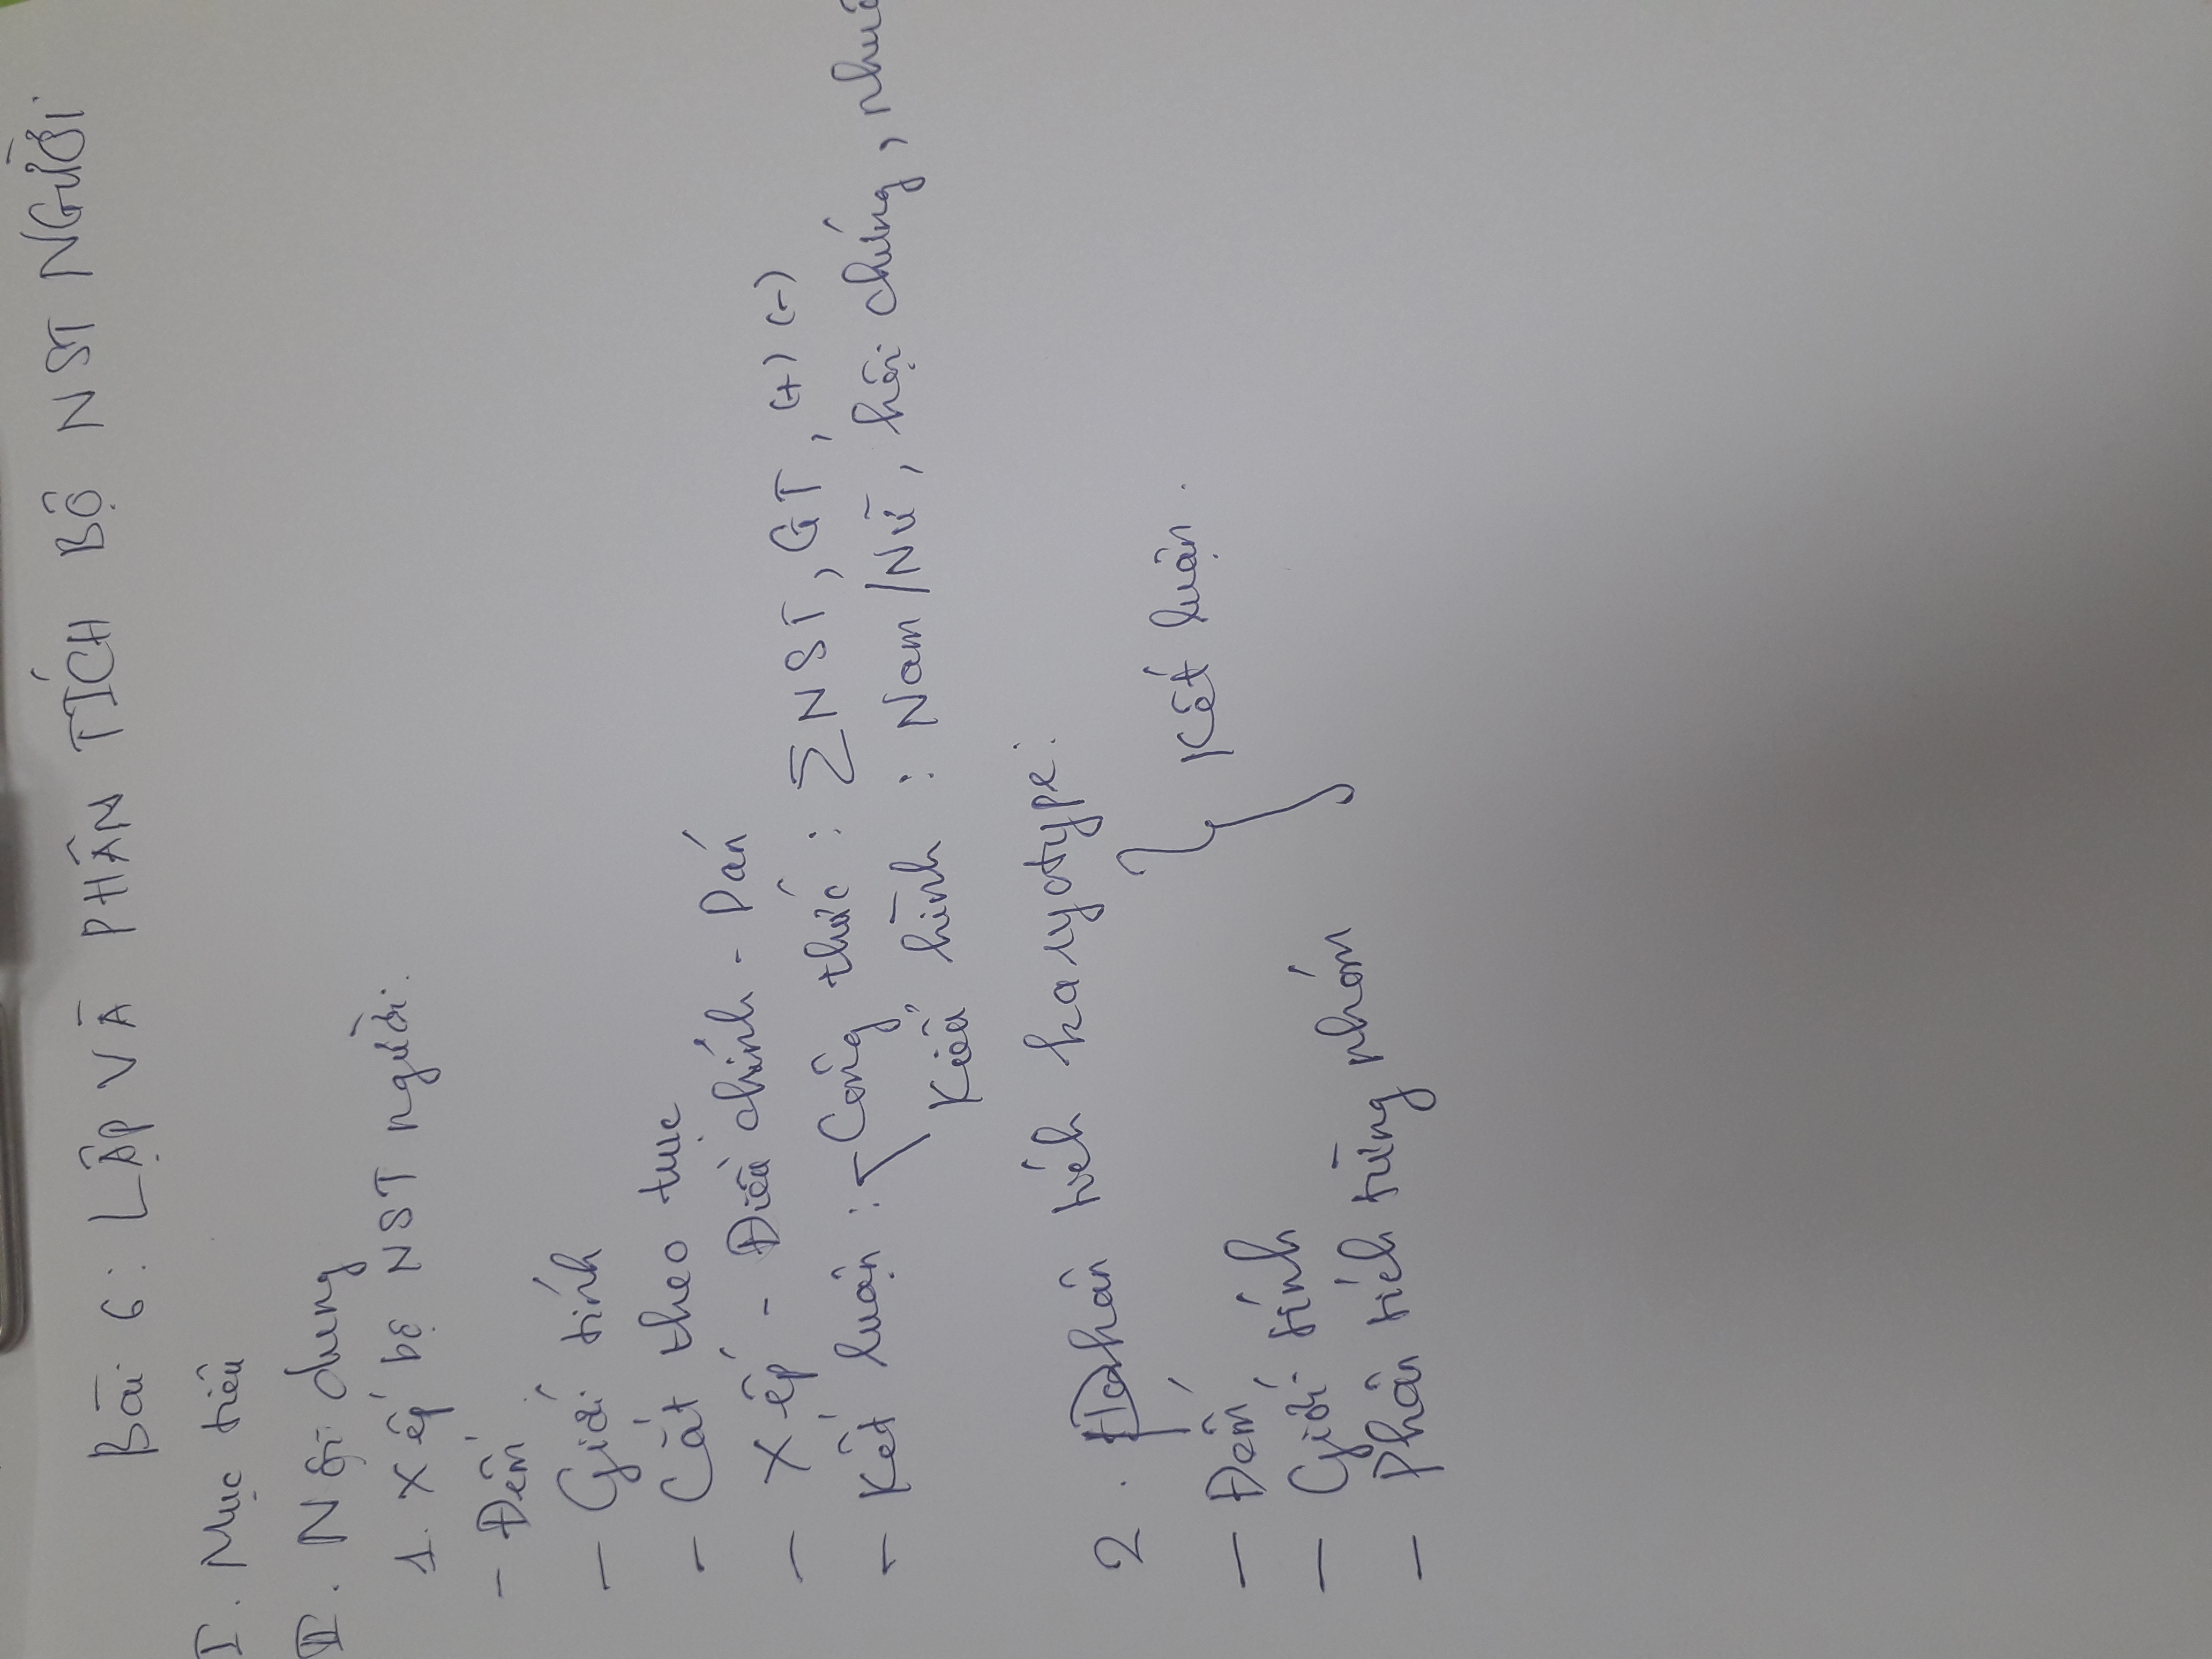 Bài 6: LẬP VÀ PHÂN TÍCH BỘ NST NGƯỜI
I. Mục tiêu
II. Nội dung
1. Xếp bộ NST người:
- Đếm
- Giới tính
- Cắt theo tục
- Xếp - Điều chỉnh - Dán
- Kết luận: Công thức: ΣNST, GT, (+) (-)
Kiểu hình: Nam/Nữ, hội chứng,
2. Phân tích karyotype:
- Đếm
- Giới tính
- Phân tích từng nhóm
Kết luận.